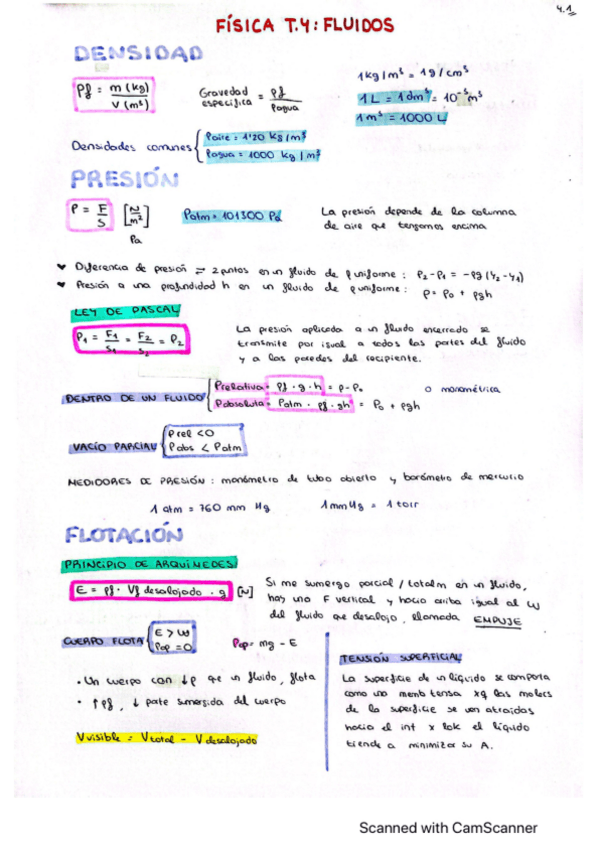 4.1
FÍSICA T.4: FLUIDOS
DENSIDAD
ρf = m (kg) / V (m³)
Gravedad específica = ρf / ρagua
1 kg/m³ = 1g/cm³
1 L = 1 dm³ = 10⁻³ m³
1 m³ = 1000 L
Densidades comunes { ρaire = 1'20 kg/m³
ρagua = 1000 kg/m³
PRESIÓN
P = F / S [N/m²]
Pa
Patm = 101300 Pa
La presión depende de la columna
de aire que tengamos encima
Diferencia de presión = 2 puntos en un fluido de ρ uniforme: P₂-P₁ = -ρg (y₂-y₁)
Presión a una profundidad h en un fluido de ρ uniforme: P = P₀ + ρgh
LEY DE PASCAL
P₁ = F₁/S₁ = F₂/S₂ = P₂
La presión aplicada a un fluido encerrado se
transmite por igual a todas las partes del fluido
y a las paredes del recipiente.
DENTRO DE UN FLUIDO { Prelativa = ρf · g · h = P-P₀ o manométrica
Pabsoluta = Patm · ρf · gh = P₀ + ρgh
VACÍO PARCIAL { Prel < 0
Pabs < Patm
MEDIDORES DE PRESIÓN: manómetro de tubo abierto y barómetro de mercurio
1 atm = 760 mm Hg 1 mmHg = 1 torr
FLOTACIÓN
PRINCIPIO DE ARQUÍMEDES
E = ρf · Vf desalojado · g [N]
Si me sumergo parcial / totalm en un fluido,
hay una F vertical y hacia arriba igual al W
del fluido que desalojo, llamada EMPUJE
CUERPO FLOTA { E > W
Pap = 0
Pap = mg - E
· Un cuerpo con ↓ρ que un fluido, flota
· ↑ρf, ↓ parte sumergida del cuerpo
Vvisible = Vtotal - Vdesalojado
TENSIÓN SUPERFICIAL
La superficie de un líquido se comporta
como una memb tensa xq las molecs
de la superficie se ven atraídas
hacia el int x lo el líquido
tiende a minimizar su A.
Scanned with CamScanner